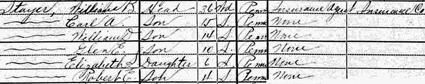 Stayer, William B. Head 36 Wd Penn Insurance Agent Insurance Co
Earl A. Son 15 S. Penn None
William Son 14 S. Penn None
Glen E. Son 10 S. Penn None
Elizabeth S. Daughter 6 S. Penn None
Robert C. Son 4 S. Penn None